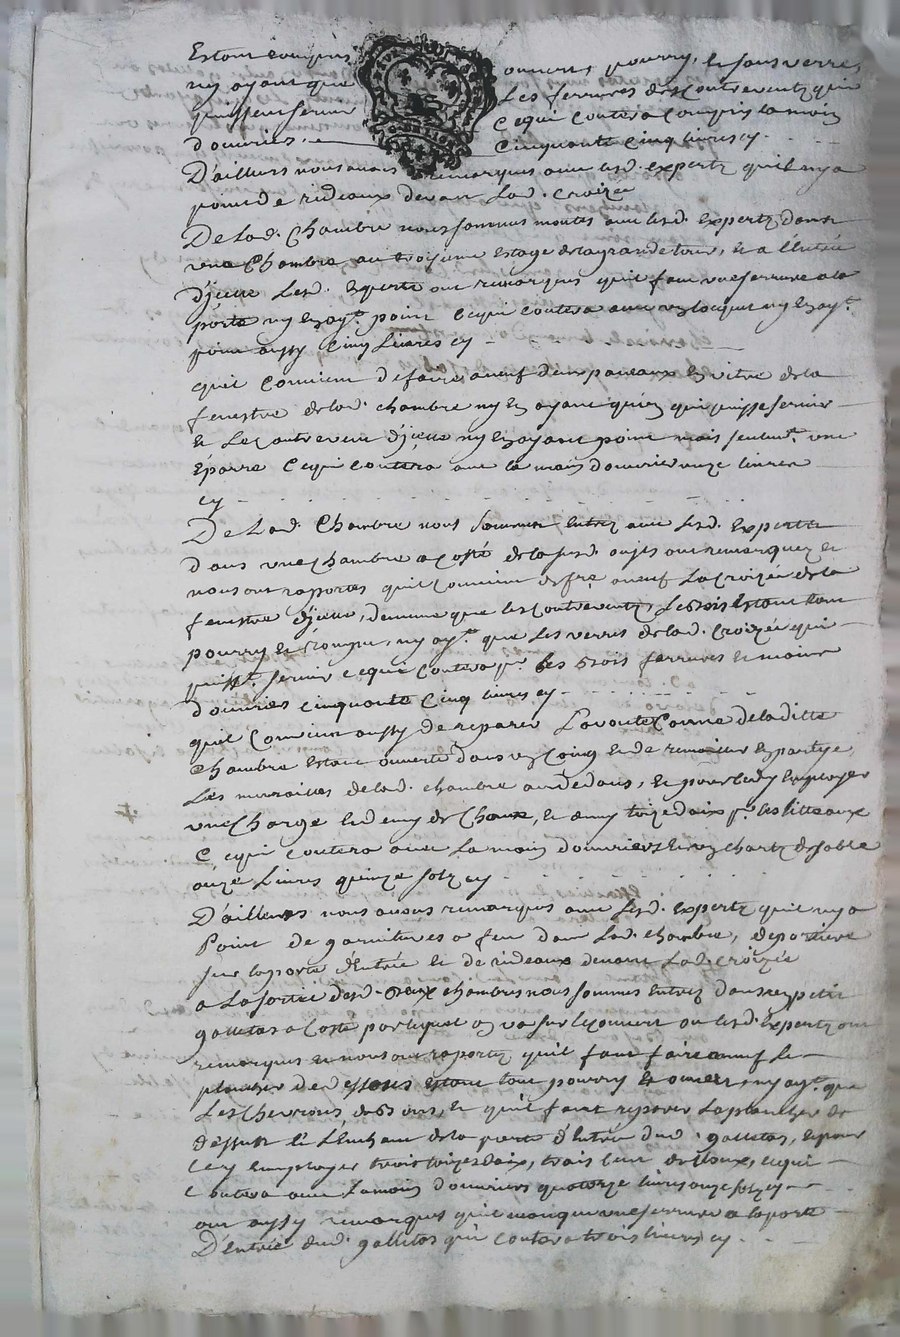 Estant compris ouverts pourry, et sans verres
ny ayant que Les ferrures des Contrevents qui
puissent servir Cequi coutera Compris la main
d'ouvries, Cinquante cinq livres cy.
D'ailleurs nous avons remarques avec lesd. expertz quil ny a
point de rideaux devant Lad. Croizee
De lad. Chambre nous sommes montes avec lesd. Expertz dans
une Chambre au troizieme Estage de la grande tour, et a l'Entrée
d'jcelle Lesd. Expertz ont remarques quil faut une serrure a la
porte ny En ay.t point Cequi coutera avec un loquet ny En ay.t
point aussy Cinq Livres cy
quil Convient de faire a neuf deux paneaux En vitre de la
fenestre de lad. chambre ny En ayant qu'un qui puisse servir
et Le Contrevent d'jcelle ny En ayant point mais seulem.t une
Eparre Cequi Coutera avec la main d'ouvrier onze livres
cy
De Lad. Chambre nous sommes Entrez avec lesd. Experts
dans une Chambre a costé de la susd. ou jls ont remarquez et
nous ont raportes quil Convient de fre a neuf La Croizée de la
fenestre d'jcelle, de meme que les Contreventz, Le bois Estant tout
pourry et Rompu, ny ay.t que Les verres de lad. Croizée qui
puiss.t servir Cequi Coutera p.r les bois ferrures et main
d'ouvries cinquante Cinq livres cy
quil Convient aussy de reparer La voute de laditte
Chambre Estant ouverte dans un Coing et de remettre En partye
Les murailles de lad. chambre au dedans, Et pour Ce Employer
une Charge et demy de Chaux, et demy toize d'aix p.r les litteaux
Cequi Coutera avec La main d'ouvriers et un chart de sable
onze Livres quinze sols cy
D'ailleurs nous avons remarques avec lesd. Expertz quil ny a
Point de garnitures a feu dans Lad. chambre, de portiere
sur la porte d'Entrée et de rideaux devant Lad. Croizée
a La sortie desd. deux chambres nous sommes Entrez dans un petit
galletas a Costé par lequel on va sur le couvert ou lesd. Expertz ont
remarques et nous ont raportez quil faut faire a neuf Le
plancher de dessous Estant tout pourry et ouvert, ny ay.t que
Les Chevrons de bons, et quil faut reparer La plancher de
dessus et de la porte d'Entrée dud. galletas, Et pour
Ce y Employer trois toizes d'aix, trois cent de Cloux, Cequi
Coutera avec La main d'ouvriers quatorze livres onze sols cy
ont aussy remarques quil manque une serrure a la porte
D'entrée dud. galletas qui Coutera trois livres cy